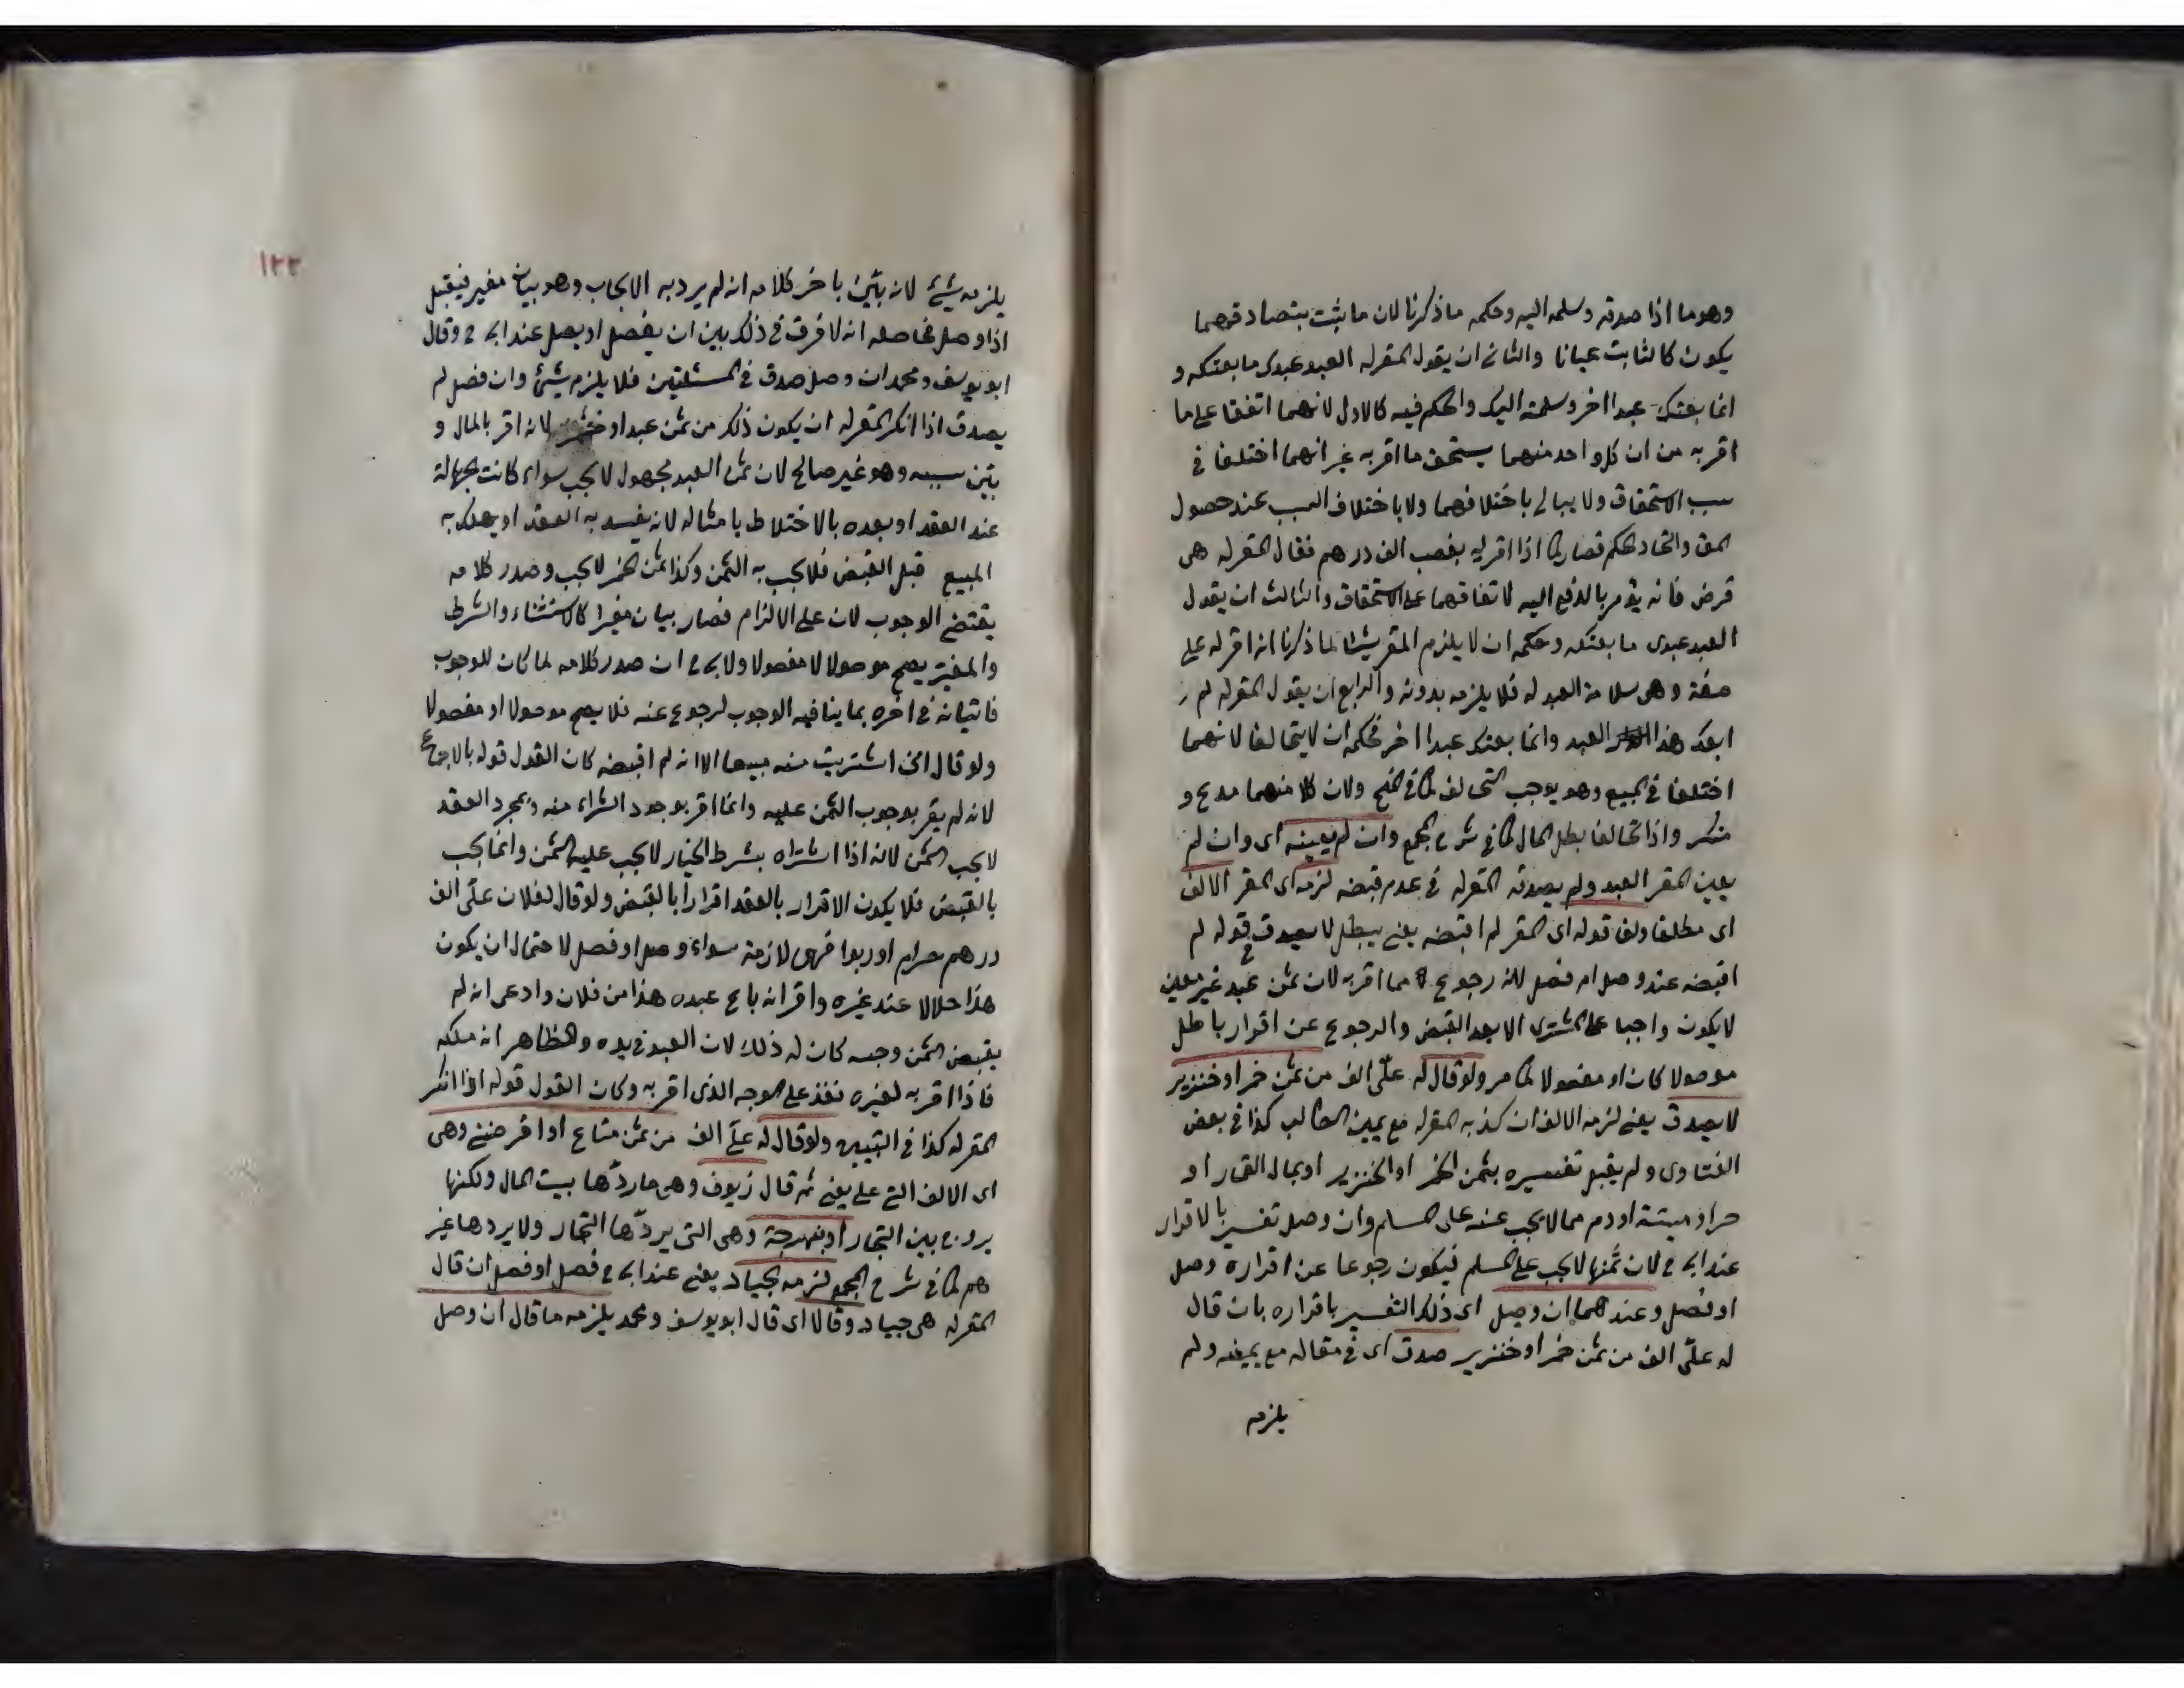 وهو ما اذا صدقه وسلمه اليه وحكمه ما ذكرنا لان ما يثبت بتصادقهما
يكون كالثابت عيانا والثانى ان يقول المقر له العبد عبدى ما بعتكه و
انما بعتك عبدا اخر وسلمته اليك والحكم فيه كالاول لانهما اتفقا على ما
اقر به من ان كل واحد منهما يستحق ما اقر به غير انهما اختلفا فى
سبب الاستحقاق ولا يبالى باختلافهما ولا باختلاف السبب عند حصول
المق واتحاد الحكم فصار كما اذا اقر له بغصب الف درهم فقال المقر له هى
قرض فانه يؤمر بالدفع اليه لاتفاقهما على الاستحقاق والثالث ان يقول
العبد عبدى ما بعتكه وحكمه ان لا يلزم المقر شيئا لما ذكرنا انه اقر له على
صفة وهى سلامة العبد له فلا يلزمه بدونه والرابع ان يقول المقر له لم
ابعك هذا العبد وانما بعتك عبدا اخر فحكمه ان لا يتحالفا لانهما
اختلفا فى المبيع وهو يوجب التحالف كما فى المنح ولان كلا منهما مدع و
منكر واذا تحالفا بطل المال كما فى شرح المجمع وان لم يعينه اى وان لم
يعين المقر العبد ولم يصدقه المقر له فى عدم قبضه لزمه اى المقر الالف
اى مطلقا ولغى قوله اى المقر لم اقبضه يعنى يبطل لا يصدق قوله لم
اقبضه عنده وصل ام فصل لانه رجوع مما اقر به لان ثمن عبد غير معين
لا يكون واجبا على المشترى الا بعد القبض والرجوع عن اقرار باطل
موصولا كان او مفصولا كما مر ولو قال له علىّ الف من ثمن خمر او خنزير
لا يصدق يعنى لزمه الالف ان كذبه المقر له مع يمين الطالب كذا فى بعض
الفتاوى ولم يقبل تفسيره بثمن الخمر او الخنزير او بمال القمار او
حر او ميتة او دم مما لا يجب عنه على المسلم وان وصل تفسير بالاقرار
عند ابى ح لان ثمنها لا يجب على المسلم فيكون رجوعا عن اقراره وصل
او فصل وعندهما ان وصل اى ذلك التفسير باقراره بان قال
له علىّ الف من ثمن خمر او خنزير صدق اى فى مقاله مع يمينه ولم
يلزمه
١٢٢
يلزمه شيئ لانه بيّن باخر كلامه انه لم يرد به الايجاب وهو بيان مغير فيقبل
اذا وصل فحاصله انه لا فرق فى ذلك بين ان يفصل او يصل عند ابى ح وقال
ابو يوسف ومحمد ان وصل صدق فى المسئلتين فلا يلزم شيئ وان فصل لم
يصدق اذا انكر المقر له ان يكون ذلك من ثمن عبد او خمر لانه اقر بالمال و
بيّن سببه وهو غير صالح لان ثمن العبد مجهول لا يجب سواء كانت الجهالة
عند العقد او بعده بالاختلاط بامثاله لانه يفسد به العقد او يهلك به
المبيع قبل القبض فلا يجب به الثمن وكذا ثمن الخمر لا يجب وصدر كلامه
يقتضى الوجوب لان على الالزام فصار بيان مغيرا كالاستثناء والشرط
والمغير يصح موصولا لا مفصولا ولابى ح ان صدر كلامه لما كان للوجوب
فاتيانه فى اخره بما ينافيه الوجوب لرجوع عنه فلا يصح موصولا او مفصولا
ولو قال انى اشتريت منه مبيعا الا انه لم اقبضه كان القول قوله بالاجماع
لانه لم يقر بوجوب الثمن عليه وانما اقر بوجود الشراء منه وبمجرد العقد
لا يجب الثمن لانه اذا اشتراه بشرط الخيار لا يجب عليه الثمن وانما يجب
بالقبض فلا يكون الاقرار بالعقد اقرارا بالقبض ولو قال لفلان علىّ الف
درهم حرام او ربوا فهى لازمة سواء وصل او فصل لاحتمال ان يكون
هذا حلالا عند غيره واقر انه باع عبده هذا من فلان وادعى انه لم
يقبض الثمن وحبسه كان له ذلك لان العبد فى يده والظاهر انه ملكه
فاذا اقر به لغيره نفذ على الوجه الذى اقر به وكان القول قوله اذا انكر
المقر له كذا فى التبيين ولو قال له علىّ الف من ثمن متاع او اقرضنى وهى
اى الالف التى على يعنى ثم قال زيوف وهى ما ردّها بيت المال ولكنها
يروج بين التجار او نبهرجة وهى التى يردّها التجار ولا يردها غير
هم كما فى شرح المجمع لزمه الجياد يعنى عند ابى ح فصل او فصل ان قال
المقر له هى جياد وقالا اى قال ابو يوسف ومحمد يلزمه ما قال ان وصل